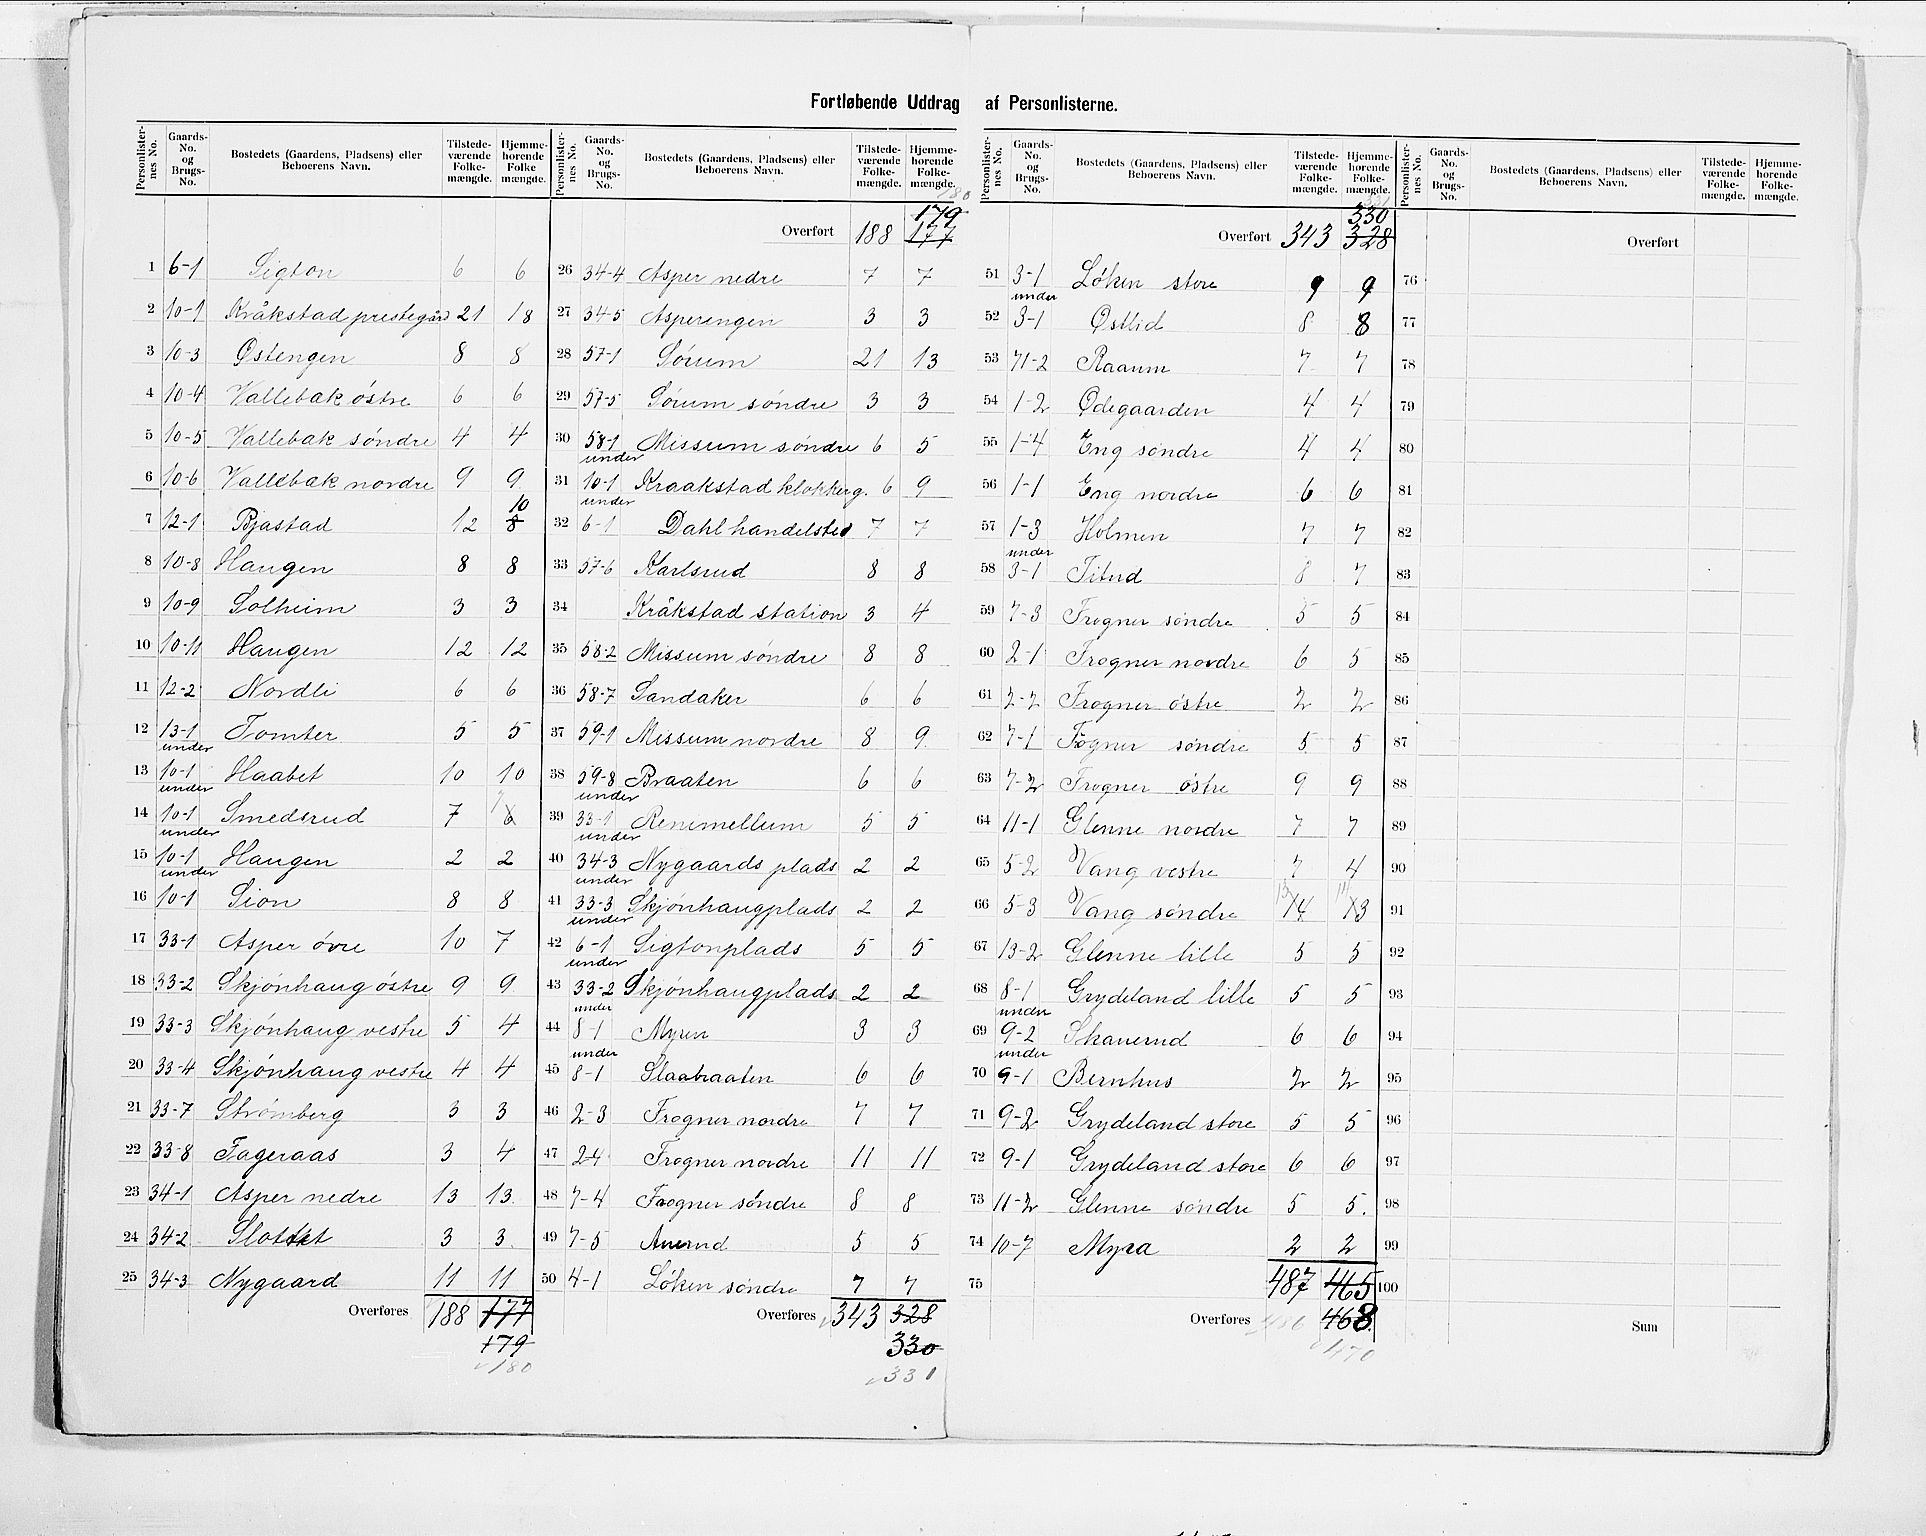 Fortløbende Uddrag af Personlisterne.
Personlisternes No. Gaards-No. og Brugs-No. Bostedets (Gaardens, Pladsens) eller Beboerens Navn. Tilstedeværende Folkemængde. Hjemmehørende Folkemængde.
1 6-1 Sigton 6 6
2 10-1 Kråkstad prestegård 21 18
3 10-3 Østengen 8 8
4 10-4 Vallebak østre 6 6
5 10-5 Vallebak søndre 4 4
6 10-6 Vallebak nordre 9 9
7 12-1 Bjastad 12 8 10
8 10-8 Haugen 8 8
9 10-9 Solheim 3 3
10 10-11 Haugen 12 12
11 12-2 Nordli 6 6
12 13-1 Tomter 5 5
13 under 10-1 Haabet 10 10
14 under 10-1 Smedsrud 7 6 7
15 under 10-1 Haugen 2 2
16 under 10-1 Sion 8 8
17 33-1 Asper øvre 10 7
18 33-2 Skjønhaug østre 9 9
19 33-3 Skjønhaug vestre 5 4
20 33-4 Skjønhaug vestre 4 4
21 33-7 Strømberg 3 3
22 33-8 Fageraas 3 4
23 34-1 Asper nedre 13 13
24 34-2 Slottet 3 3
25 34-3 Nygaard 11 11
Overføres 188 177
179
180
Personlisternes No. Gaards-No. og Brugs-No. Bostedets (Gaardens, Pladsens) eller Beboerens Navn. Tilstedeværende Folkemængde. Hjemmehørende Folkemængde.
180
179
Overført 188 177
26 34-4 Asper nedre 7 7
27 34-5 Asperengen 3 3
28 57-1 Sørum 21 13
29 57-5 Sørum søndre 3 3
30 58-1 Missum søndre 6 5
31 under 10-1 Kraakstad klokkerg. 6 9
32 under 6-1 Dahl handelsted 7 7
33 57-6 Karlsrud 8 8
34 Kråkstad station 3 4
35 58-2 Missum søndre 8 8
36 58-7 Sandaker 6 6
37 59-1 Missum nordre 8 9
38 59-8 Braaten 6 6
39 under 33-1 Renimellum 5 5
40 under 34-3 Nygaards plads 2 2
41 under 33-3 Skjønhaugplads 2 2
42 under 6-1 Sigtonplads 5 5
43 under 33-2 Skjønhaugplads 2 2
44 under 8-1 Myren 3 3
45 under 8-1 Slaabraaten 6 6
46 2-3 Frogner nordre 7 7
47 2-4 Frogner nordre 11 11
48 7-4 Frogner søndre 8 8
49 7-5 Auerud 5 5
50 4-1 Løken søndre 7 7
Overføres 343 328
330
331
Personlisternes No. Gaards-No. og Brugs-No. Bostedets (Gaardens, Pladsens) eller Beboerens Navn. Tilstedeværende Folkemængde. Hjemmehørende Folkemængde.
331
330
Overført 343 328
51 3-1 Løken store 9 9
52 under 3-1 Østlid 8 8
53 71-2 Raaum 7 7
54 1-2 Ødegaarden 4 4
55 1-4 Eng søndre 4 4
56 1-1 Eng nordre 6 6
57 1-3 Holmen 7 7
58 under 3-1 Titud 8 7
59 7-3 Frogner søndre 5 5
60 2-1 Frogner nordre 6 5
61 2-2 Frogner østre 2 2
62 7-1 Fogner søndre 5 5
63 7-2 Frogner østre 9 9
64 11-1 Glenne nordre 7 7
65 5-2 Vang vestre 7 4
66 5-3 Vang søndre 14 13 13 14
67 13-2 Glenne lille 5 5
68 8-1 Grydeland lille 5 5
69 under 9-2 Skauerud 6 6
70 under 9-1 Bernhus 2 2
71 9-2 Grydeland store 5 5
72 9-1 Grydeland store 6 6
73 11-2 Glenne søndre 5 5
74 10-7 Myra 2 2
75 487 465
Overføres 486 468
470
Personlisternes No. Gaards-No. og Brugs-No. Bostedets (Gaardens, Pladsens) eller Beboerens Navn. Tilstedeværende Folkemængde. Hjemmehørende Folkemængde.
Overført
76
77
78
79
80
81
82
83
84
85
86
87
88
89
90
91
92
93
94
95
96
97
98
99
100
Sum